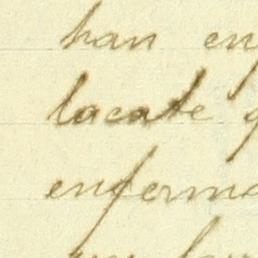 han en
lacate
enferma